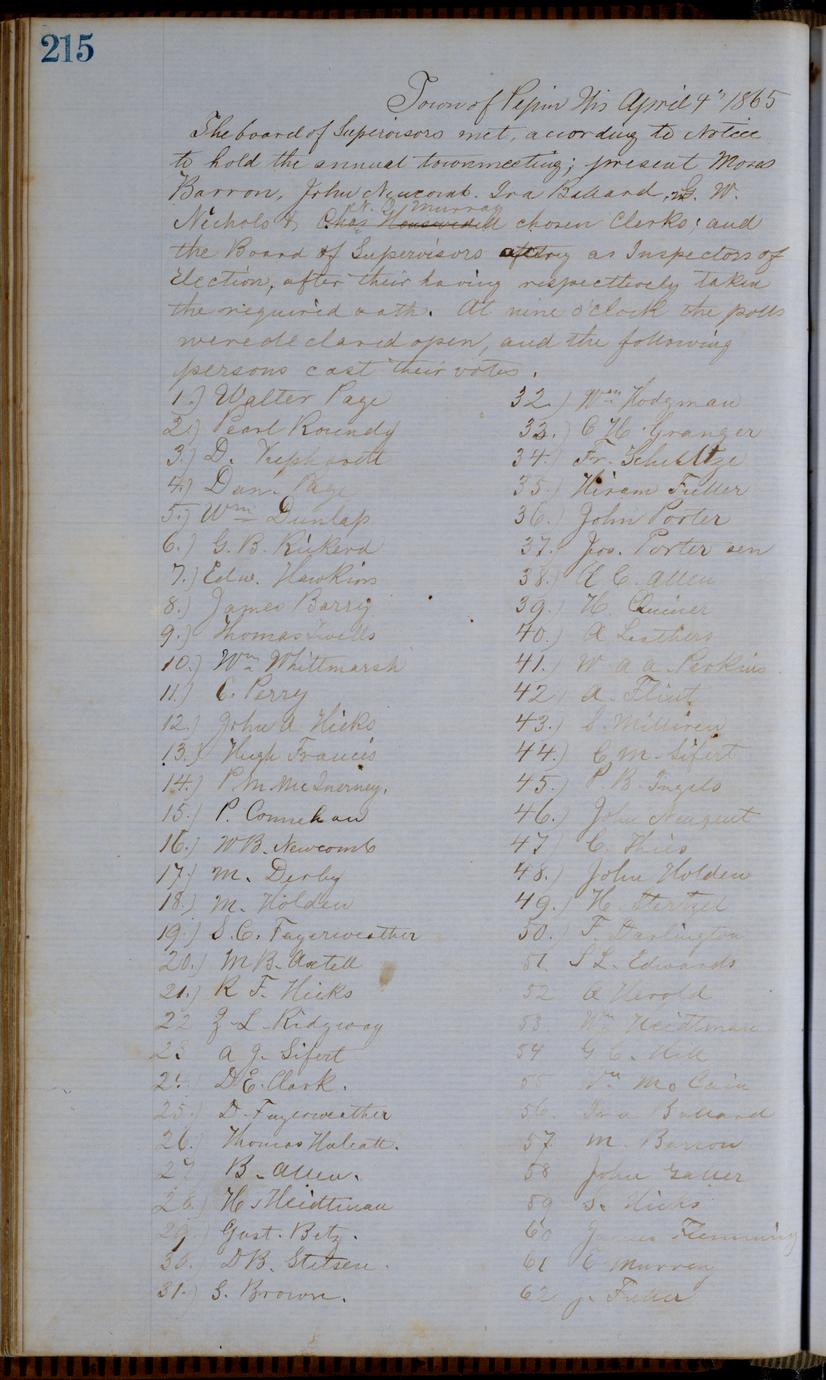 215
Town of Pepin Wis April 4th 1865
The board of Supervisors met, acording to Notice
to hold the annual townmeeting; present Moses
Barron, John Newcomb. Ira Ballard, G. W.
E. Murray
Nichols & Chas chosen Clerks; and
the Board of Supervisors as Inspectors of
Election, after their having respecttively taken
the required oath. At nine o'clock the polls
were declared open, and the following
persons cast their votes.
1.) Walter Page
2.) Pearl Roundy
3.) D. Kephartt
4.) Dan. Page
5.) Wm Dunlap
6.) G. B. Rickerd
7.) Edw. Hawkins
8.) James Barry
9.) Thomas
10.) Wm Whittmarsh
11.) C. Perry
12.) John A Hicks
13.) Hugh Francis
14.) P. M. McInerney.
15.) P. Connehan
16.) W B. Newcomb
17.) M. Derby
18.) M. Holden
19.) S. C. Fayerweather
20.) M B. Axtell
21.) R F. Hicks
22 Z L Ridgway
23 A J. Sifert
24.) D. E. Clark.
25.) D. Fayerweather
26.) Thomas
27) B. Allen.
28.) H. Heidtman
29) Gust. Betz.
30.) D B. Stetsen.
31.) S. Brown.
32.) Wm Hodgman
33.) C H. Granger
34.) Fr. Schultze
35.) Hiram Fuller
36.) John Porter
37.) Jos. Porter sen
38.) A C. Allen
39.) H. Quiner
40.) A Leathers
41.) W. A. A. Perkins
42) A. Flint
43.) S. Milliren
44.) C. M. Sifert
45.) P. B. Ingels
46.) John Neugent
47) C. Thies
48.) John Holden
49.) H. Stertzel
50.) F Darlington
51. S L. Edwards
52 A Herold
53. Wm Heidtman
54 G C. Hill
55 Wm McCain
56. Ira Ballard
57. M. Barron
58 John
59 S. Hicks
60 James Flemming
61 E Murray
62 J. Fuller